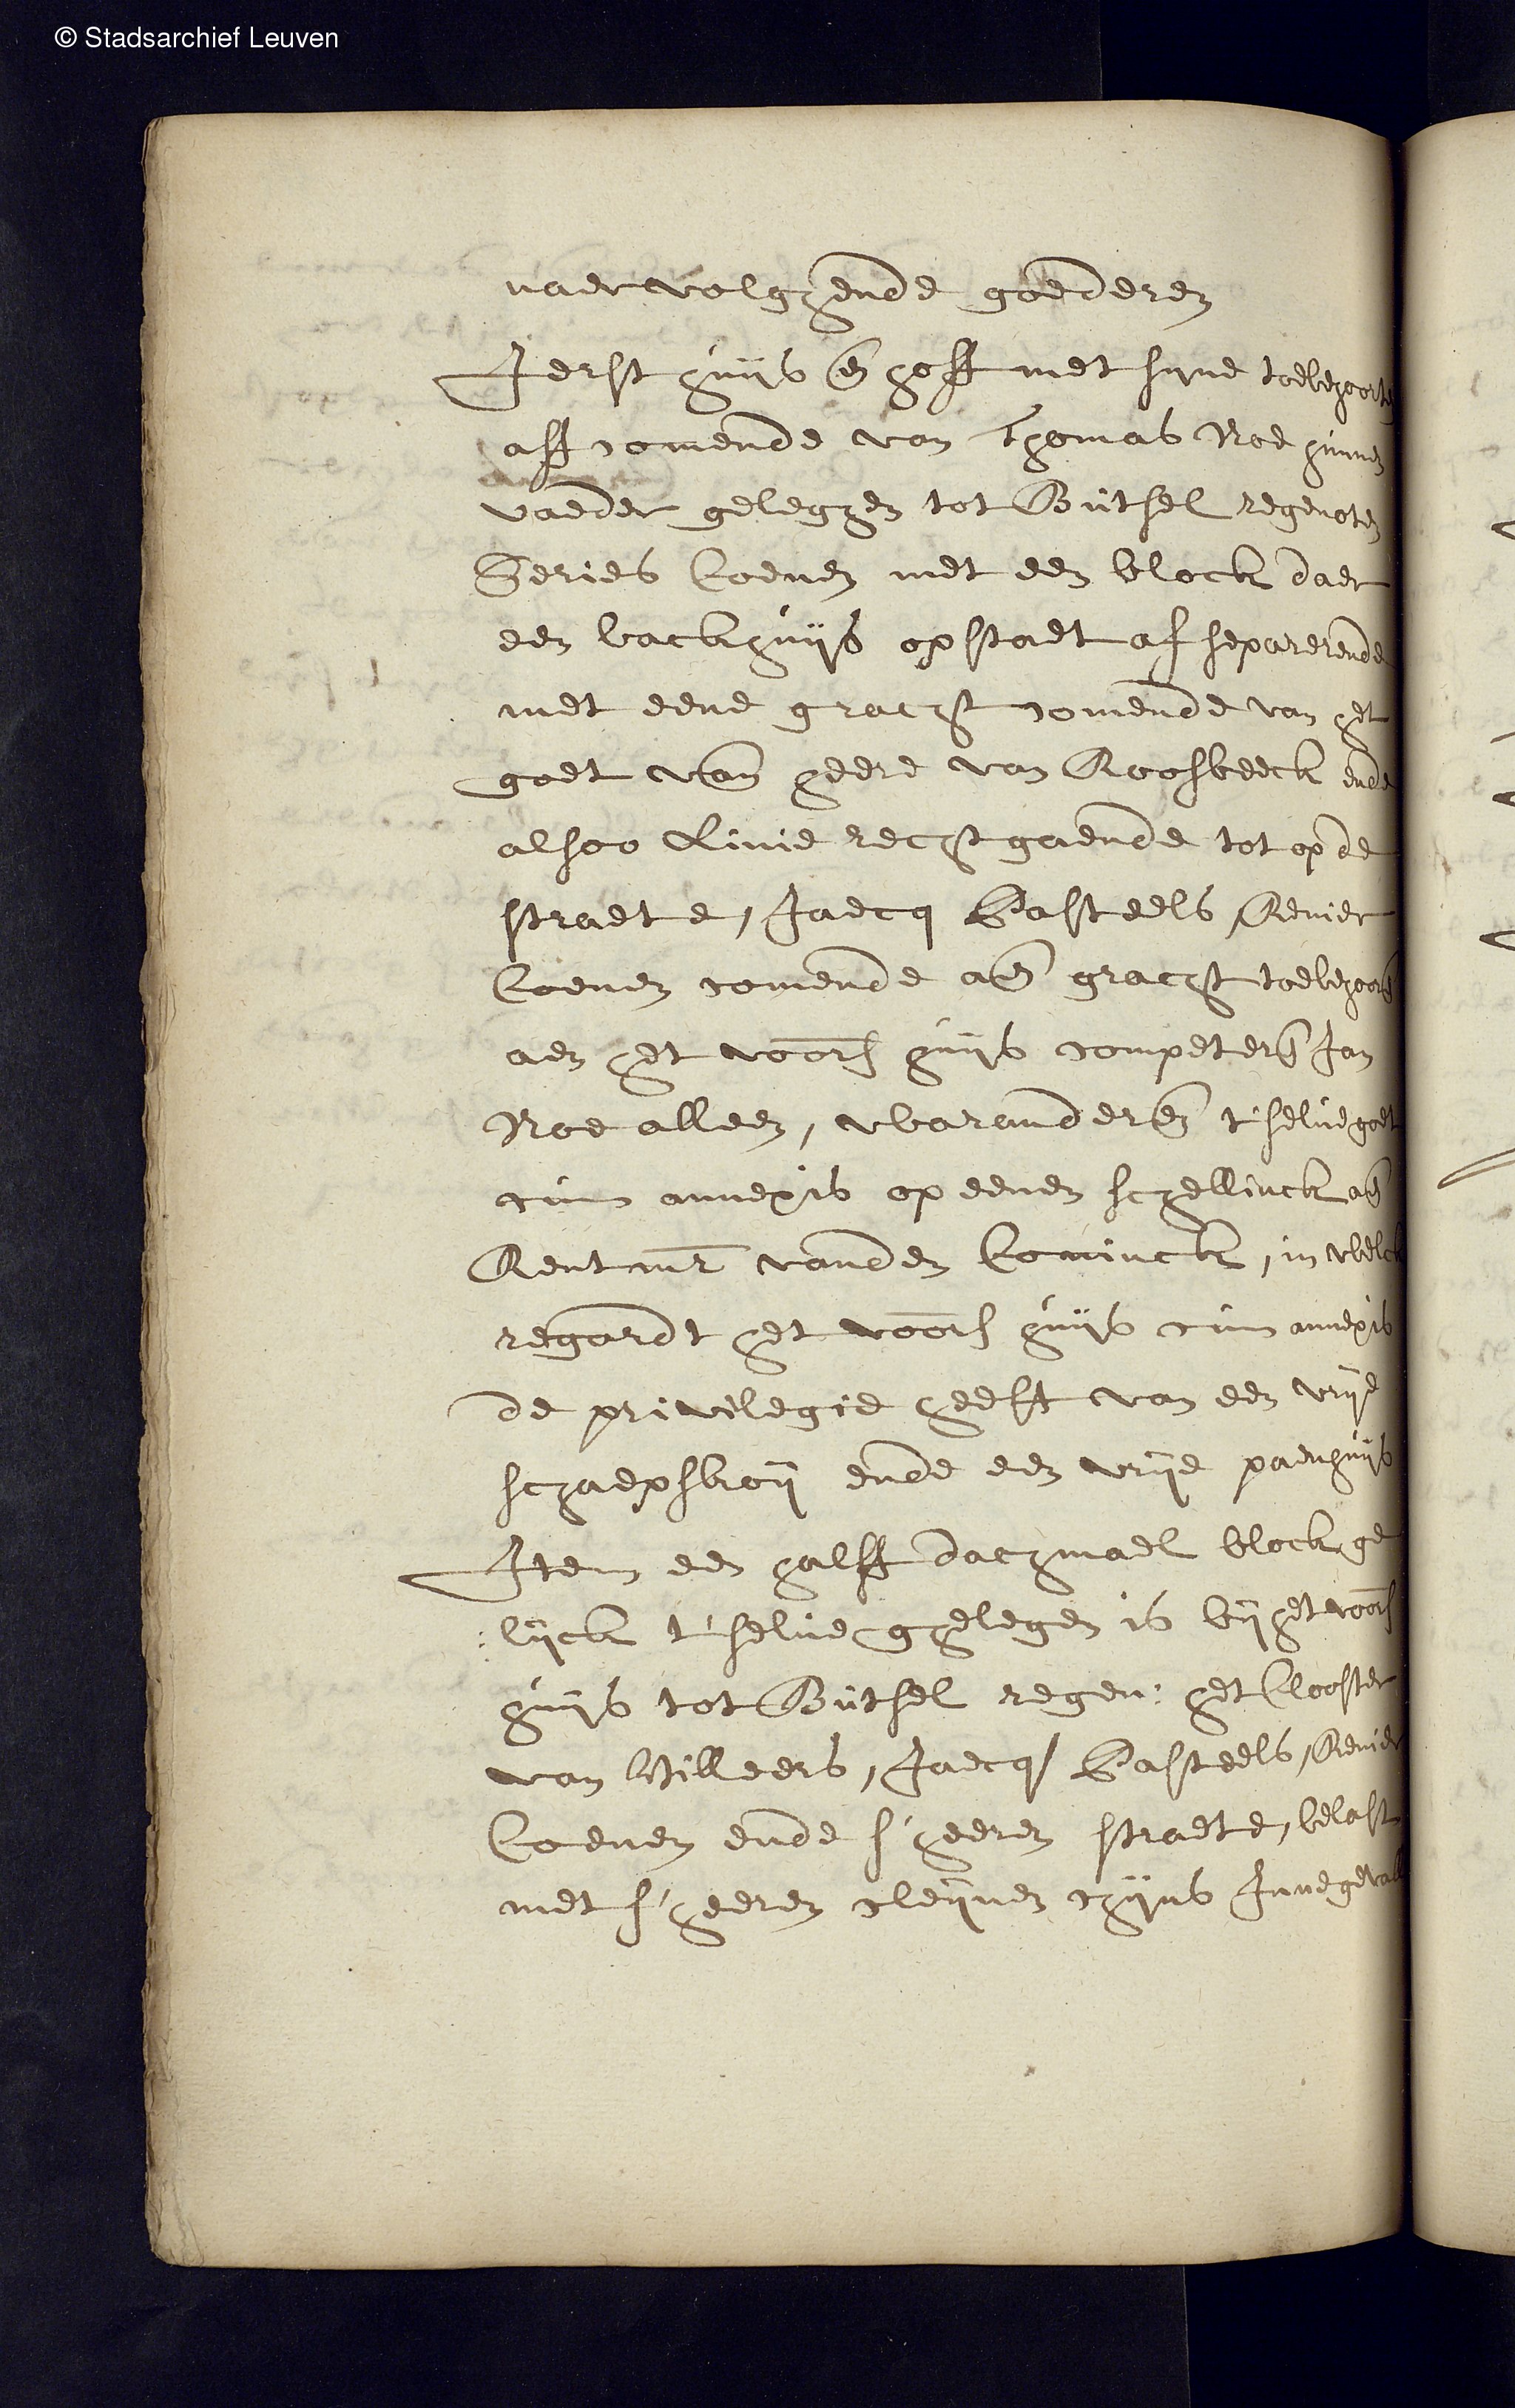 © Stadsarchief Leuven
naervolghende goederen
Ierst huijs en hoff met syne toebehoorte
aff comende van Thomas Noe hunnen
vaeder geleghen tot Butsel regenoten
Series Coenen met een block daer
een backhuijs opstaet afseparerende
met eene gracht comende van het
goet van heere van Roosbeeck ende
alsoo linie recht gaende tot op de
straete, Jaecq Casteels, Renier
Coenen comende aen gracht toebehoor
aen het voors huijs competeren Jan
Noe alleen, waranderen t'selve goet
cum annexis op eenen schellinck aen
Rentmr vanden Coninck, in welck
regardt het voors huijs cum annexis
de privilegie heeft van een vrije
schaepsdroij ende een vrije panhuijs
Item een halff dachmael block ge
:lijck t'selve ghelegen is bij het voors
huijs tot Butsel regen: het Clooster
van Villeers, Jaecq Casteels, Renier
Coenen ende s'heeren straete, belast
met s'heeren cleijnen chijns Inne gevall